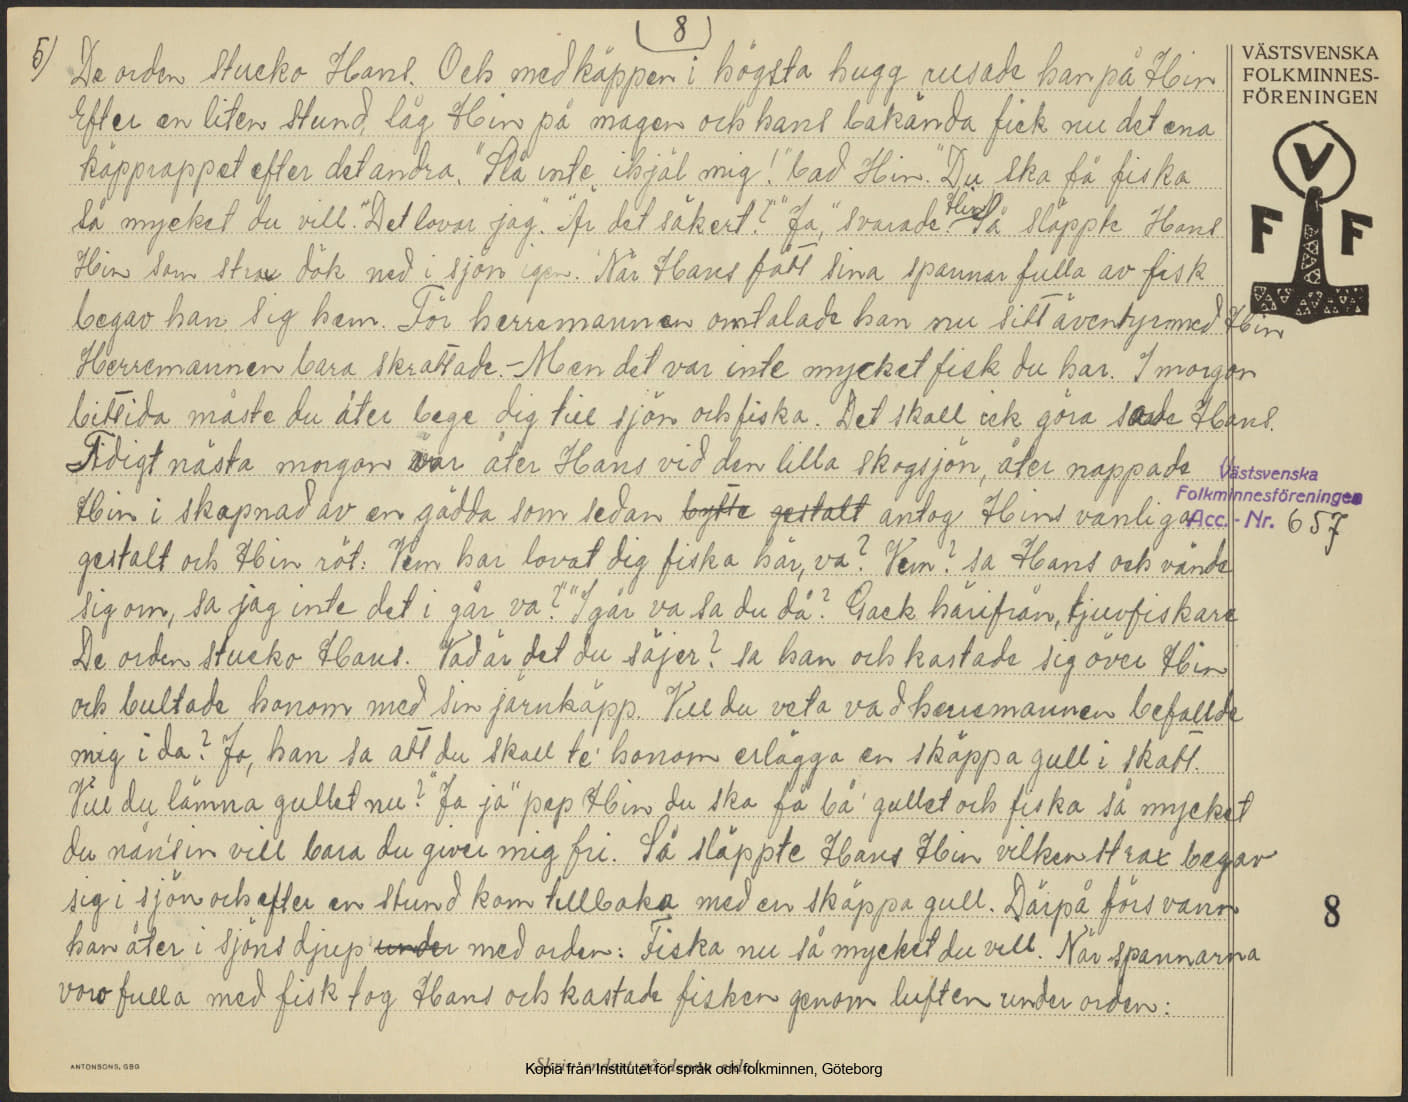 8
5)
De orden stucko Hans. Och med käppen i högsta hugg rusade han på Hin
Efter en liten stund, låg Hin på magen och hans bakända fick nu det ena
käpprappet efter det andra. "Slå inte ihjäl mig!" bad Hin. "Du ska få fiska
så mycket du vill." Det lovar jag". "Är det säkert?" "Ja," svarade Hin. Så släppte Hans
Hin som strax dök ned i sjön igen. När Hans fått sina spannar fulla av fisk
begav han sig hem. För herremannen omtalade han nu sitt äventyr med Hin
Herremannen bara skrattade. - Men det var inte mycket fisk du har. I morgon
bittida måste du åter bege dig till sjön och fiska. Det skall ick göra sade Hans.
Tidigt nästa morgon var åter Hans vid den lilla skogsjön, åter nappade
Hin i skapnad av en gädda som sedan bytte gestalt antog Hins vanliga
gestalt och Hin röt: Vem har lovat dig fiska här, va? Vem? sa Hans och vände
sig om, sa jag inte det i går va?" "I går va sa du då? Gack härifrån, tjuvfiskare
De orden stucko Hans. Vad är det du säjer? sa han och kastade sig över Hin
och bultade honom med sin järnkäpp. Vill du veta vad herremannen befallde
mig i da? Jo, han sa att du skall te' honom erlägga en skäppa gull i skatt.
Vill du lämna gullet nu?" "Ja ja" pep Hin du ska få bå' gullet och fiska så mycket
du nånsin vill bara du giver mig fri. Så släppte Hans Hin vilken strax begav
sig i sjön och efter en stund kom tillbaka med en skäppa gull. Därpå försvann
han åter i sjöns djup under med orden: Fiska nu så mycket du vill. När spannarna
voro fulla med fisk tog Hans och kastade fisken genom luften under orden:
VÄSTSVENSKA
FOLKMINNES-
FÖRENINGEN
V
F F
Västsvenska
Folkminnesföreningen
Acc. - Nr. 657
8
ANTONSONS, GBG
Kopia från Institutet för språk och folkminnen, Göteborg